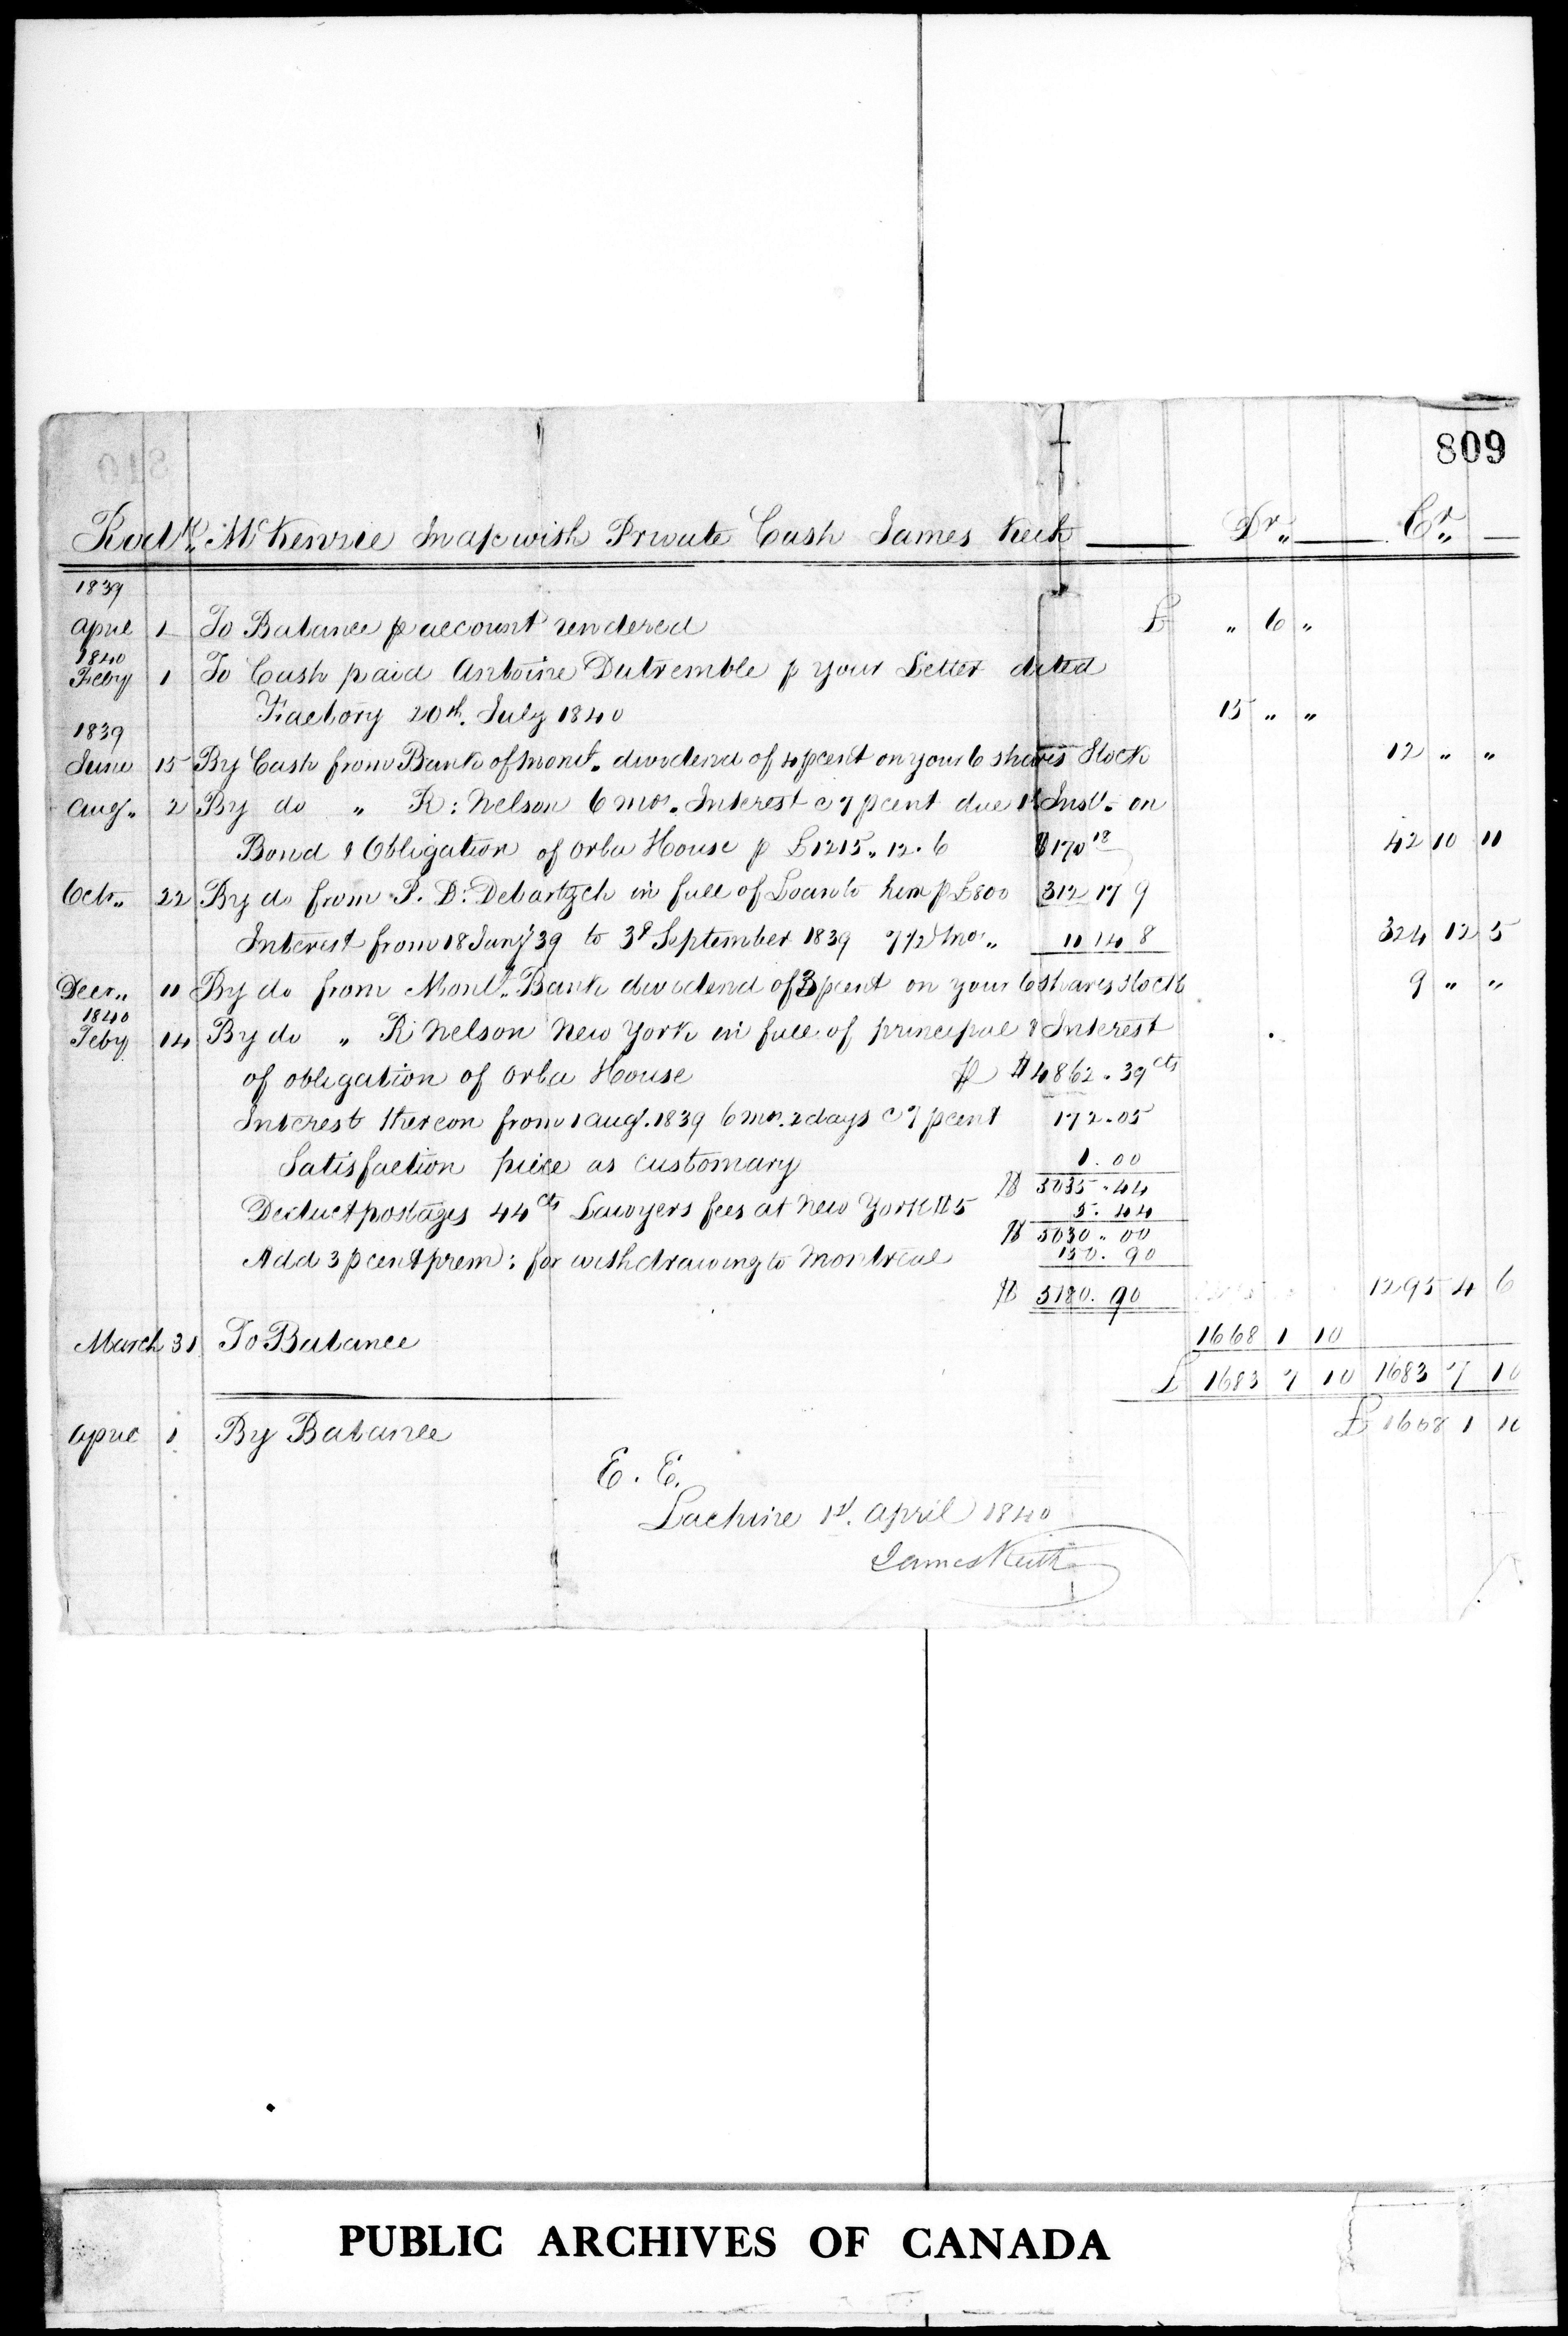 809
Rodk. McKenzie In a/c with Private Cash James Keith Dr. Cr.
1839
April 1 To Balance p account rendered £ " 6 "
1840
Feby 1 To Cash paid Antoine Dutremble p your Letter dated
Factory 20th. July 1840 15 " "
1839
June 15 By Cash from Bank of Montl. dividend of 4 pcent on your 6 shares Stock 12 " "
Augt. 2 By do " R: Nelson 6 mos. Interest @ 7 pcent due 1st Inst. on
Bond & Obligation of Orba House p £1215 " 12 . 6 $170 18 42 10 11
Octr. 22 By do from P. D: Debartzch in full of Loan to him p £800 312 17 9
Interest from 18 Jany 39 to 3d September 1839 7 1/2 mos. 11 14 8 324 12 5
Decr. 11 By do from Montl. Bank dividend of 3 pcent on your 6 shares Stock 9 " "
1840
Feby 14 By do " R Nelson New York in full of principal & Interest
of obligation of Orba House p $4862 . 39 cts
Interest thereon from 1 Augt. 1839 6 mos. 2 days @ 7 pcent 172.05
Satisfaction piece as customary 1.00
$ 5035.44
Deduct postages 44 cts Lawyers fees at New York $5 5.44
$ 5030.00
Add 3 pcent prem: for withdrawing to Montreal 150.90
$ 5180.90 1295 4 6
March 31 To Balance 1668 1 10
£ 1683 7 10 1683 7 10
April 1 By Balance £ 1668 1 10
E. E.
Lachine 1st. April 1840
James Keith
PUBLIC ARCHIVES OF CANADA